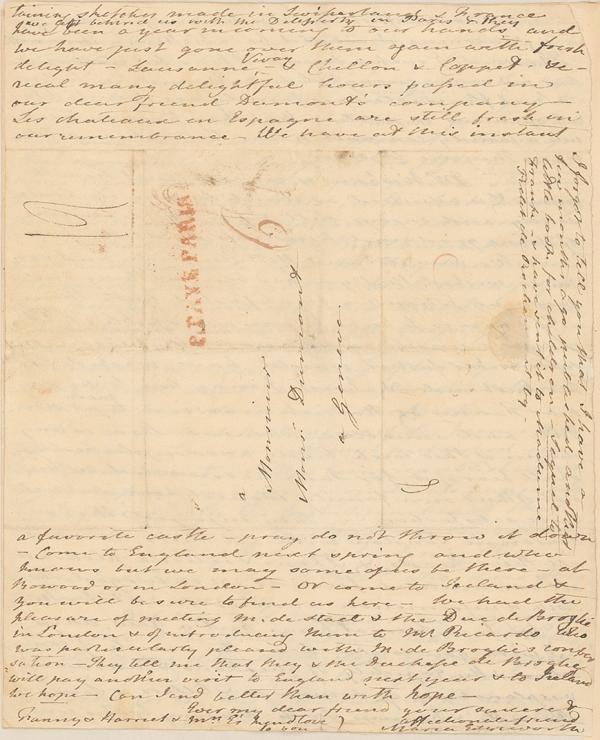 taining sketches made in Switzerland & France
we left behind us with the Delesserts in Paris & they
have been a year in coming to our hands and
we have just gone over them again with fresh
delight - Lausanne - Vevay & Chillon & Coppet - Se-
veral many delightful hours passed in
our dear friend Dumont's company -
Les chateaux en Espagne are still fresh in
our remembrance - We have at this instant
P. PAYÉ PARIS
a
Monsieur
Monsr Dumont
a Geneve
I forgot to tell you that I have a
few months ago published another
little book for children - Sequel to
Frank - I have sent it to Madame
Pictet de Rochemont by -
a favorite castle - pray do not throw it down
- Come to England next spring and who
knows but we may some of us be there - at
Bowood or in London - Or come to Ireland &
you will be sure to find us here - We had the
pleasure of meeting M. de Stael & the Duc de Broglie
in London & of introducing them to Mr Ricardo who
was particularly pleased with M. de Broglie's conver
sation - They tell me that they & the Duchesse de Broglie
will pay another visit to England next year & to Ireland
we hope - Can I end better than with hope -
Ever my dear friend your sincere &
Fanny & Harriet & Mrs E's send love affectionate friend
to you Maria Edgeworth